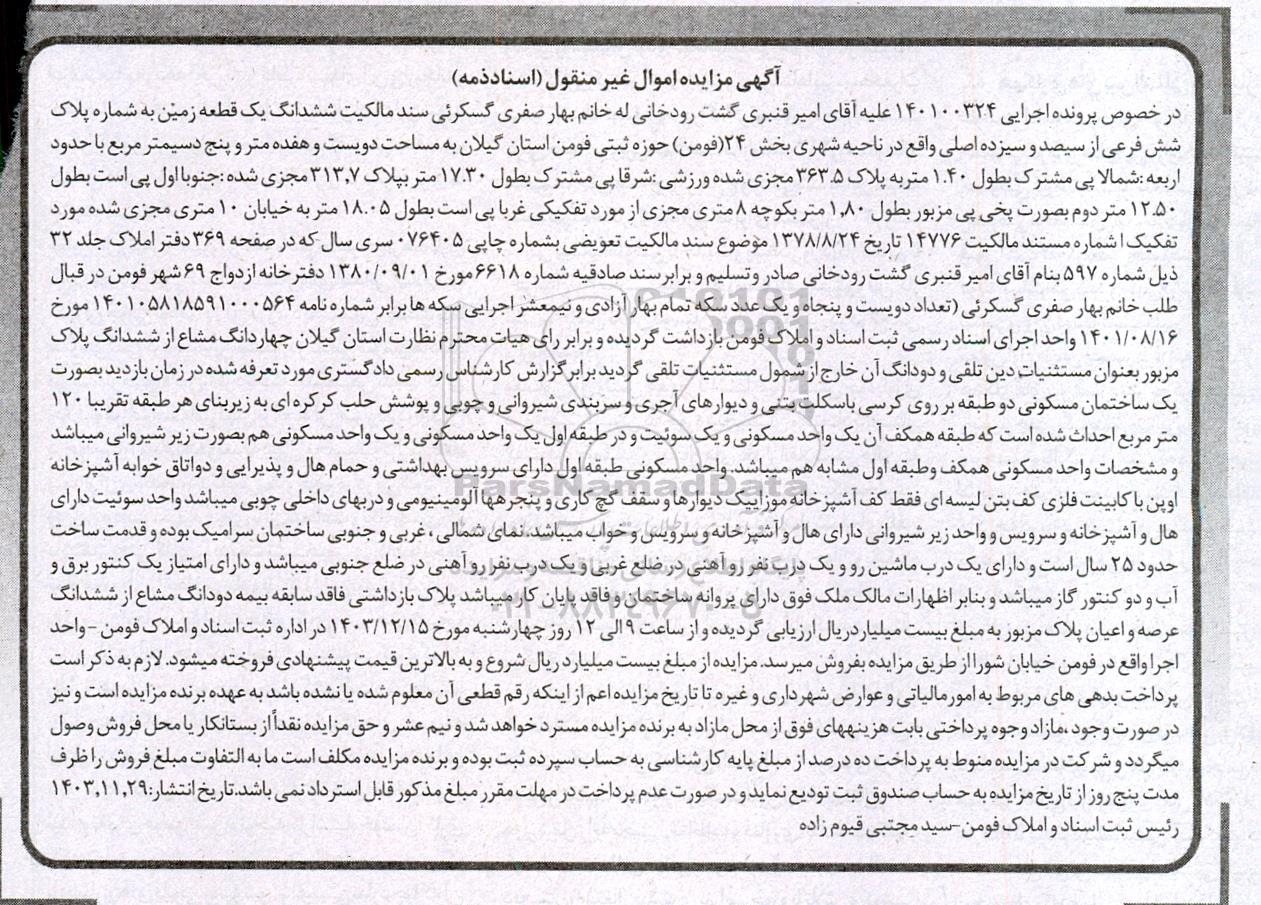 آگهی مزایده اموال غیر منقول (اسنادذمه)
در خصوص پرونده اجرایی ۱۴۰۱۰۰۳۲۴ علیه آقای امیر قنبری گشت رودخانی له خانم بهار صفری گسکرئی سند مالکیت ششدانگ یک قطعه زمین به شماره پلاک
شش فرعی از سیصد و سیزده اصلی واقع در ناحیه شهری بخش ۲۴(فومن) حوزه ثبتی فومن استان گیلان به مساحت دویست و هفده متر و پنج دسیمتر مربع با حدود
اربعه :شمالا پی مشترک بطول ۱.۴۰ متربه پلاک ۳۶۳.۵ مجزی شده ورزشی :شرقا پی مشترک بطول ۱۷.۳۰ متر بپلاک ۳۱۳,۷ مجزی شده :جنوبا اول پی است بطول
۱۲.۵۰ متر دوم بصورت پخی پی مزبور بطول ۱,۸۰ متر بکوچه ۸ متری مجزی از مورد تفکیکی غربا پی است بطول ۱۸.۰۵ متر به خیابان ۱۰ متری مجزی شده مورد
تفکیک ا شماره مستند مالکیت ۱۴۷۷۶ تاریخ ۱۳۷۸/۸/۲۴ موضوع سند مالکیت تعویضی بشماره چاپی ۰۷۶۴۰۵ سری سال که در صفحه ۳۶۹ دفتر املاک جلد ۳۲
ذیل شماره ۵۹۷ بنام آقای امیر قنبری گشت رودخانی صادر وتسلیم و برابر سند صادقیه شماره ۶۶۱۸ مورخ ۱۳۸۰/۰۹/۰۱ دفترخانه ازدواج ۶۹ شهر فومن در قبال
طلب خانم بهار صفری گسکرئی (تعداد دویست و پنجاه و یک عدد سکه تمام بهار آزادی و نیمعشر اجرایی سکه ها برابر شماره نامه ۱۴۰۱۰۵۸۱۸۵۹۱۰۰۰۵۶۴ مورخ
۱۴۰۱/۰۸/۱۶ واحد اجرای اسناد رسمی ثبت اسناد و املاک فومن بازداشت گردیده و برابر رای هیات محترم نظارت استان گیلان چهاردانگ مشاع از ششدانگ پلاک
مزبور بعنوان مستثنیات دین تلقی و دودانگ آن خارج از شمول مستثنیات تلقی گردید برابر گزارش کارشناس رسمی دادگستری مورد تعرفه شده در زمان بازدید بصورت
یک ساختمان مسکونی دو طبقه بر روی کرسی باسکلت بتنی و دیوارهای آجری و سربندی شیروانی و چوبی و پوشش حلب کرکره ای به زیربنای هر طبقه تقریبا ۱۲۰
متر مربع احداث شده است که طبقه همکف آن یک واحد مسکونی و یک سوئیت و در طبقه اول یک واحد مسکونی و یک واحد مسکونی هم بصورت زیر شیروانی میباشد
و مشخصات واحد مسکونی همکف وطبقه اول مشابه هم میباشد. واحد مسکونی طبقه اول دارای سرویس بهداشتی و حمام هال و پذیرایی و دواتاق خوابه آشپزخانه
اوپن با کابینت فلزی کف بتن لیسه ای فقط کف آشپزخانه موزاییک دیوارها و سقف گچ کاری و پنجرهها آلومینیومی و دربهای داخلی چوبی میباشد واحد سوئیت دارای
هال و آشپزخانه و سرویس و واحد زیر شیروانی دارای هال و آشپزخانه و سرویس و خواب میباشد. نمای شمالی ، غربی و جنوبی ساختمان سرامیک بوده و قدمت ساخت
حدود ۲۵ سال است و دارای یک درب ماشین رو و یک درب نفر رو آهنی در ضلع غربی و یک درب نفر رو آهنی در ضلع جنوبی میباشد و دارای امتیاز یک کنتور برق و
آب و دو کنتور گاز میباشد و بنابر اظهارات مالک ملک فوق دارای پروانه ساختمان و فاقد پایان کار میباشد پلاک بازداشتی فاقد سابقه بیمه دودانگ مشاع از ششدانگ
عرصه و اعیان پلاک مزبوز به مبلغ بیست میلیاردریال ارزیابی گردیده و از ساعت ۹ الی ۱۲ روز چهارشنبه مورخ ۱۴۰۳/۱۲/۱۵ در اداره ثبت اسناد و املاک فومن -واحد
اجرا واقع در فومن خیابان شورا از طریق مزایده بفروش میرسد. مزایده از مبلغ بیست میلیارد ریال شروع و به بالاترین قیمت پیشنهادی فروخته میشود. لازم به ذکر است
پرداخت بدهی های مربوط به امورمالیاتی و عوارض شهرداری و غیره تا تاریخ مزایده اعم از اینکه رقم قطعی آن معلوم شده یا نشده باشد به عهده برنده مزایده است و نیز
در صورت وجود ،مازاد وجوه پرداختی بابت هزینههای فوق از محل مازاد به برنده مزایده مسترد خواهد شد و نیم عشر و حق مزایده نقداً از بستانکار یا محل فروش وصول
میگردد و شرکت در مزایده منوط به پرداخت ده درصد از مبلغ پایه کارشناسی به حساب سپرده ثبت بوده و برنده مزایده مکلف است ما به التفاوت مبلغ فروش را ظرف
مدت پنج روز از تاریخ مزایده به حساب صندوق ثبت تودیع نماید و در صورت عدم پرداخت در مهلت مقرر مبلغ مذکور قابل استرداد نمی باشد.تاریخ انتشار:۱۴۰۳,۱۱,۲۹
رئیس ثبت اسناد و املاک فومن-سید مجتبی قیوم زاده
ParsNamadData
۰۲۱-۸۸۳۴۹۶۷۰-۵